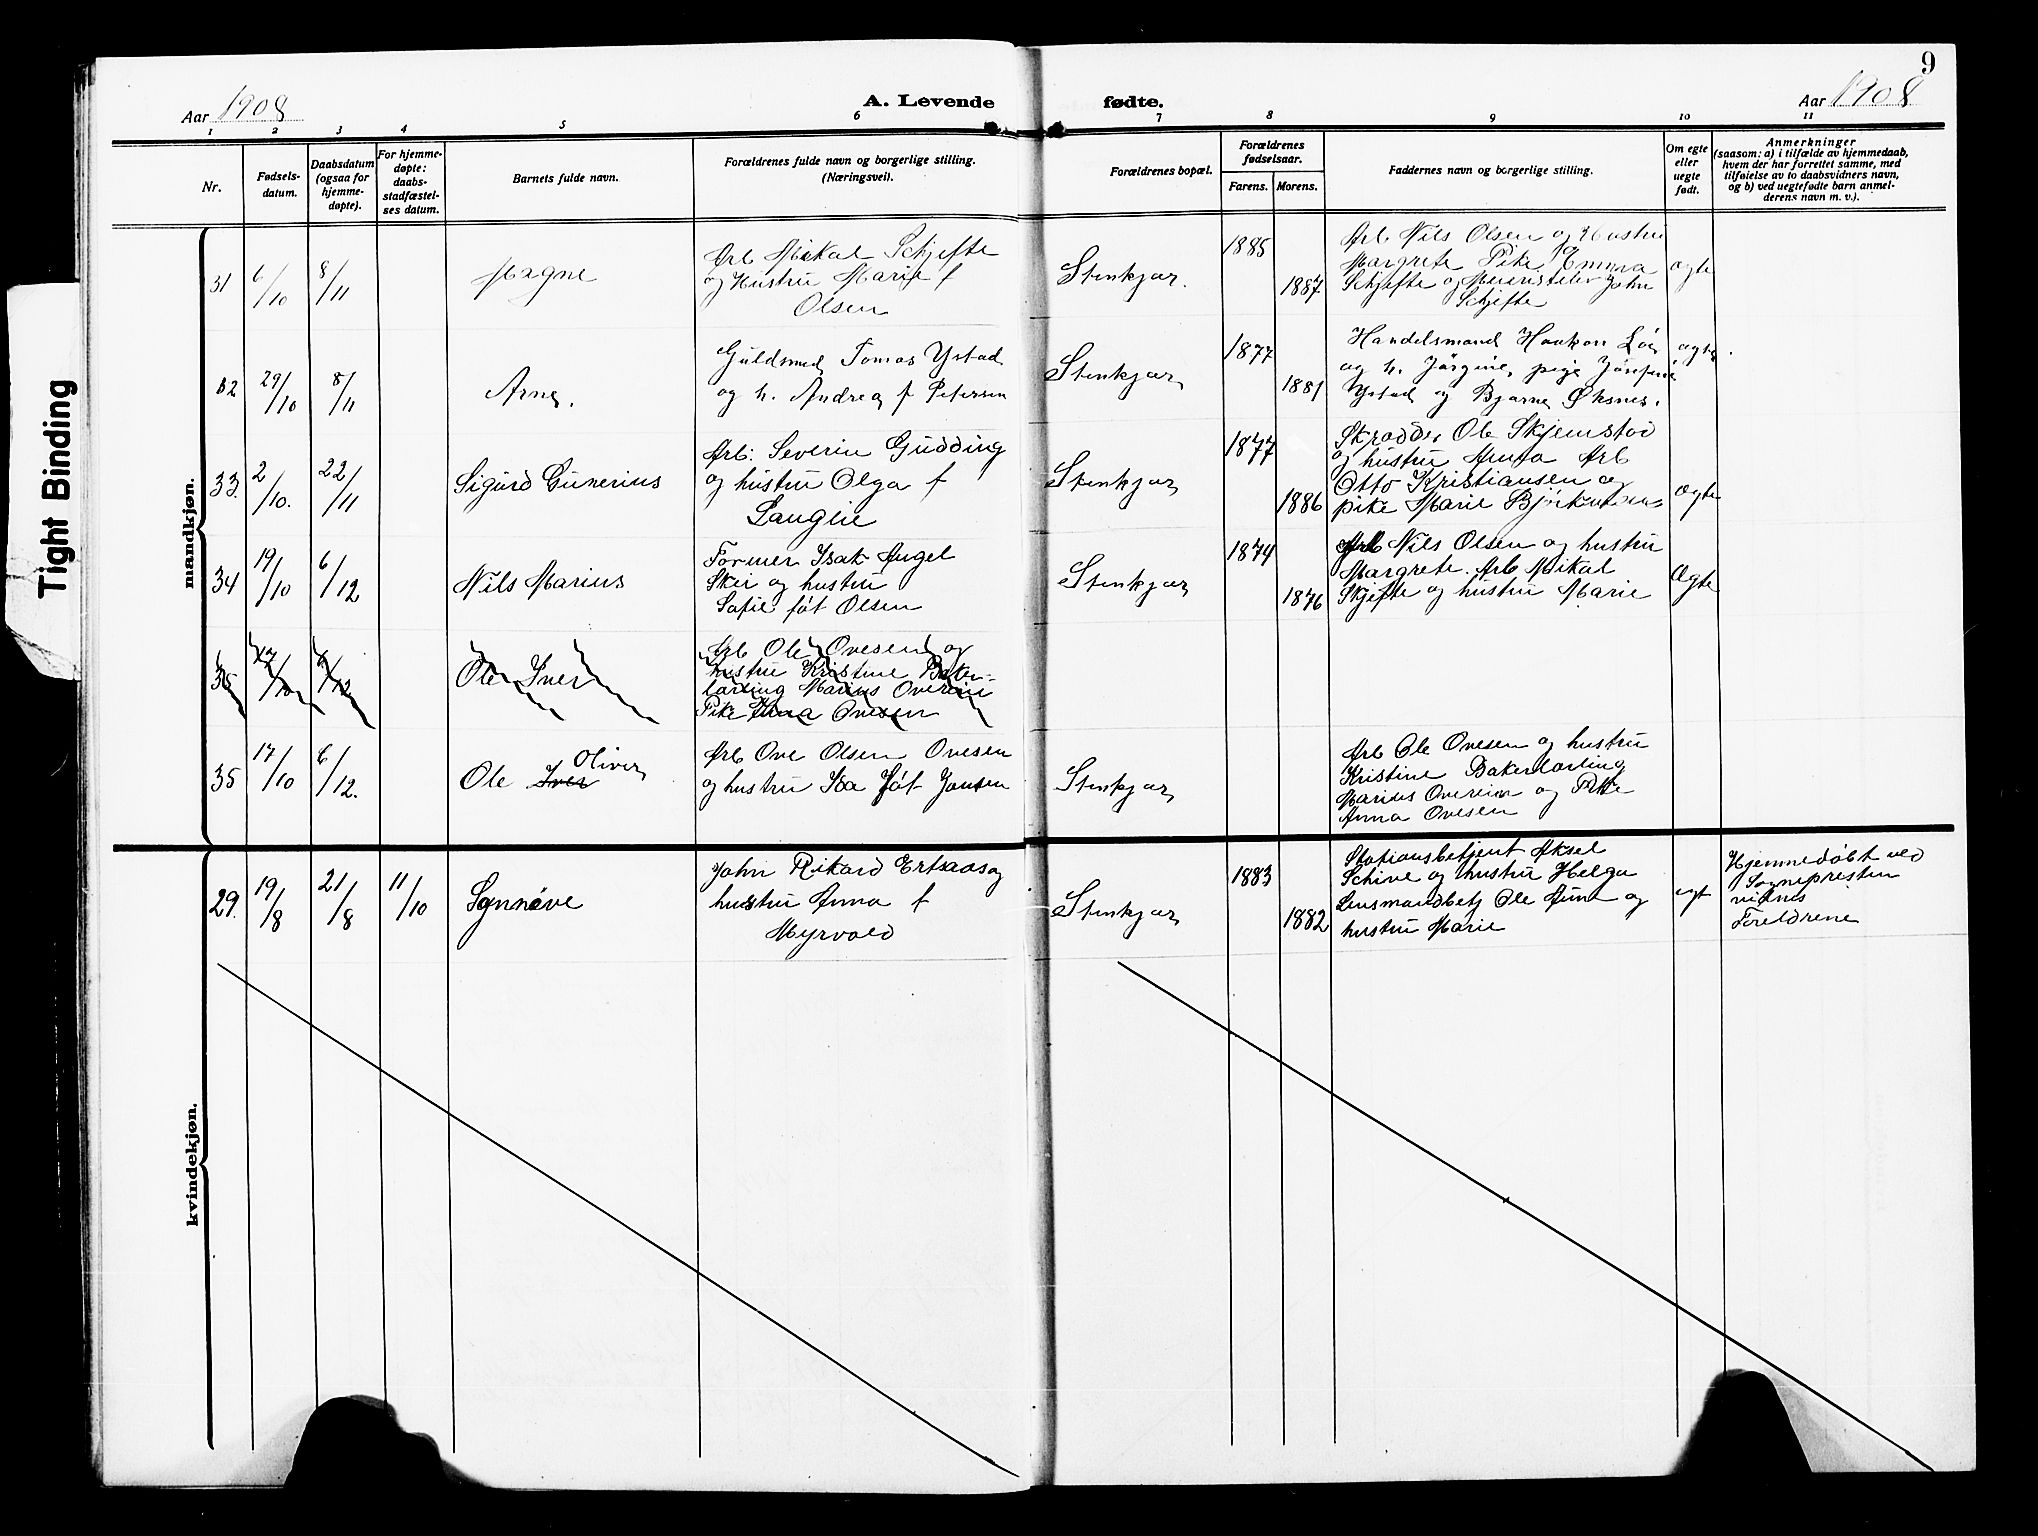 9
Aar 1908
A. Levende
fødte.
Aar 1908
1 2 3 4 5 6 7 8 9 10 11
Nr.
Fødsels-
datum.
Daabsdatum
(ogsaa for
hjemme-
døpte).
For hjemme-
døpte:
daabs-
stadfæstel-
ses datum.
Barnets fulde navn.
Forældrenes fulde navn og borgerlige stilling.
(Næringsvei).
Forældrenes bopæl.
Forældrenes
fødselsaar.
Farens. Morens.
Faddernes navn og borgerlige stilling.
Om egte
eller
uegte
født.
Anmerkninger
(saasom: a) i tilfælde av hjemmedaab,
hvem der har forrettet samme, med
tilføielse av to daabsvidners navn,
og b) ved uegtefødte barn anmel-
derens navn m. v.).
Tight Binding
mandkjøn.
31 6/10 8/11
Magne
Arb Mikal Schjefte
og Hustru Marie f
Olsen
Stenkjær.
1885
1887
Arb Nils Olsen og Hustru
Margrete Pike Emma
Schjefte og John
Schjefte
ægte
32 29/10 8/11
Arne.
Guldsmed Tomas Ystad
og h. Andrea f Petersen
Stenkjær
1877
1881
Handelsmand Haakon
og h. Jørgine, pige Josefine
Ystad og Bjarne Øksnes.
ægte
33. 2/10. 22/11
Sigurd Gunerius
Arb: Severin Gudding
og hustru Olga f
Langlie
Stenkjær
1877
1886
Skrædder Ole Skjemstad
og hustru Anna Arb
Otto Kristiansen og
pike Marie
ægte
34 19/10 6/12
Nils Marius
Former Isak Angel
Skei og hustru
Sofie føt Olsen
Stenkjær
1874
1876
Arb Nils Olsen og hustru
Margrete. Arb Mikal
Skjefte og hustru Marie
Ægte
35 17/10 6/12
Ole Iver
Arb Ole Ovesen og
hustru Kristine Baker-
lærling Marius Overein
Pike Anna Ovesen
35 17/10 6/12.
Ole Iver Oliver
Arb Ove Olsen Ovesen
og hustru Isa føt Jansen
Stenkjær
Arb Ole Ovesen og hustru
Kristine Bakerlærling
Marius Overein og Pike
Anna Ovesen
kvindekjøn.
29. 19/8 21/8 11/10
Synnøve
John Rikard Ertsaas og
hustru Anna f
Myrvold
Stenkjær
1883
1882
Stationsbetjent Aksel
Schive og hustru Helga
Lensmandbetj Ole Aune og
hustru Marie
egt
Hjemmedøbt ved
Sognepresten
vidnes
Foreldrene